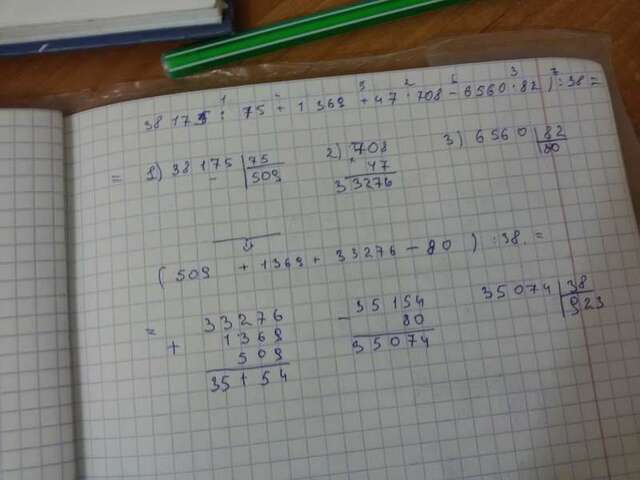 1 2 5 2 6 3 7
38 175 : 75 + 1 369 + 47 · 708 - 6560 : 82 ) : 38 =
= 1) 38 175 | 75 2) 708 3) 6560 | 82
509 × 47 80
33276
( 509 + 1369 + 33276 - 80 ) : 38 =
= 33276 35154 35074 | 38
+ 1369 - 80 923
509 35074
35154